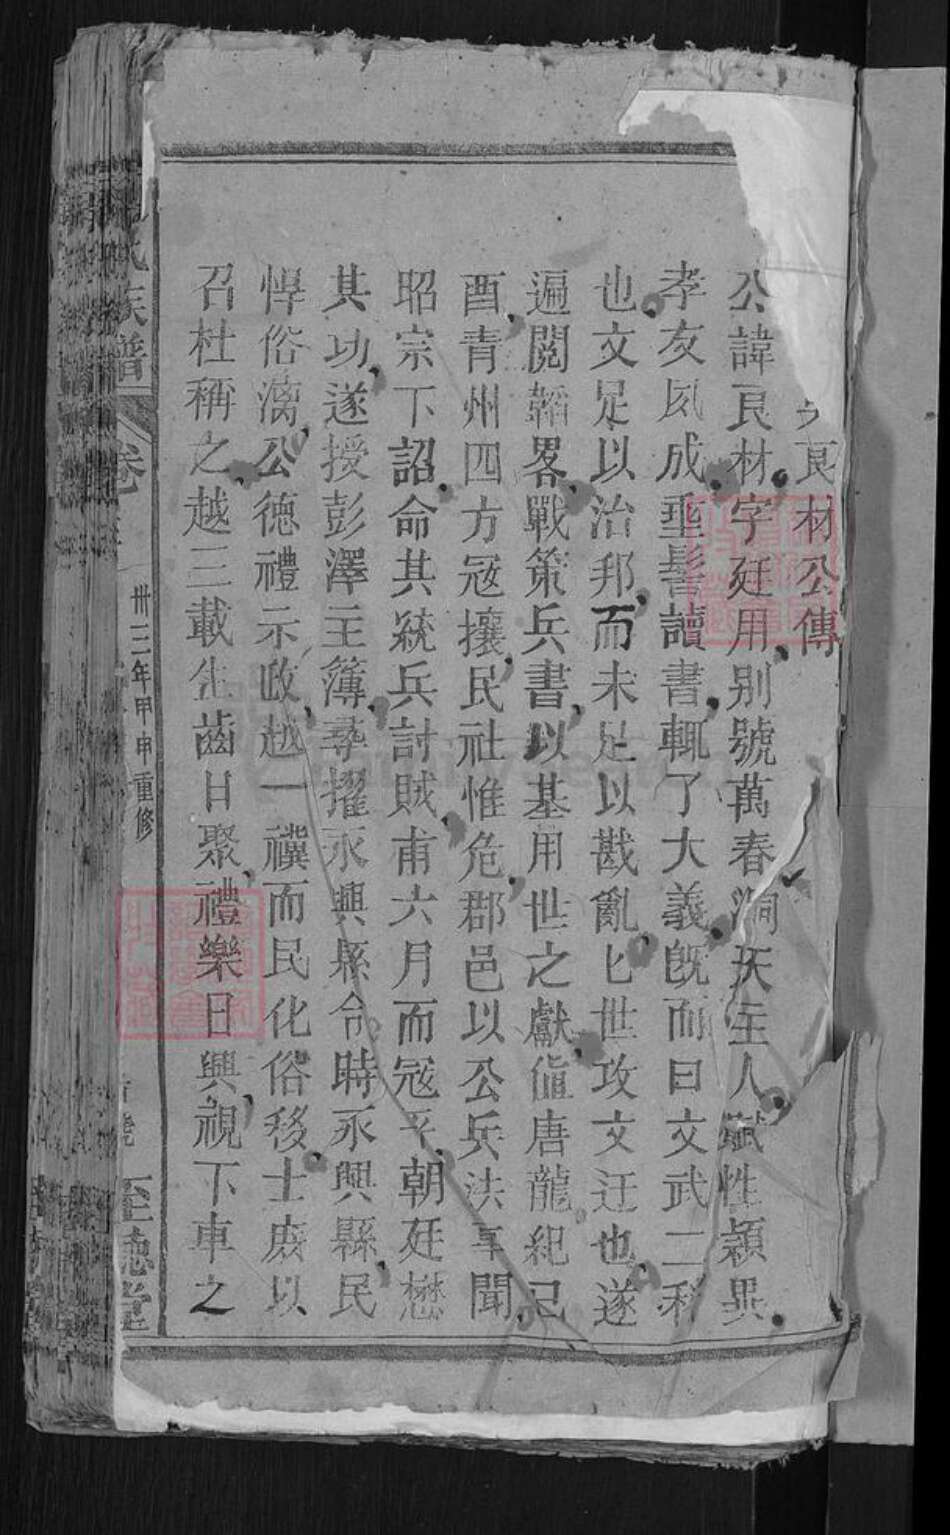 良材公傳
公諱良材字廷用別號萬春洞天主人賦性穎異
孝友夙成垂髫讀書輒了大義既而曰文武二科
也文足以治邦而未足以戡亂匕世攻文迂也遂
遍閱韜畧戰策兵書以基用世之獻值唐龍紀己
酉青州四方寇攘民社惟危郡邑以公兵法事聞
昭宗下詔命其統兵討賊甫六月而寇平朝廷懋
其功遂授彭澤主簿尋擢永興縣令時永興縣民
悍俗漓公德禮示政越一禩而民化俗移士庶以
召杜稱之越三載生齒日聚禮樂日興視下車之
氏族譜
卷
卅三年甲申重修
至德堂